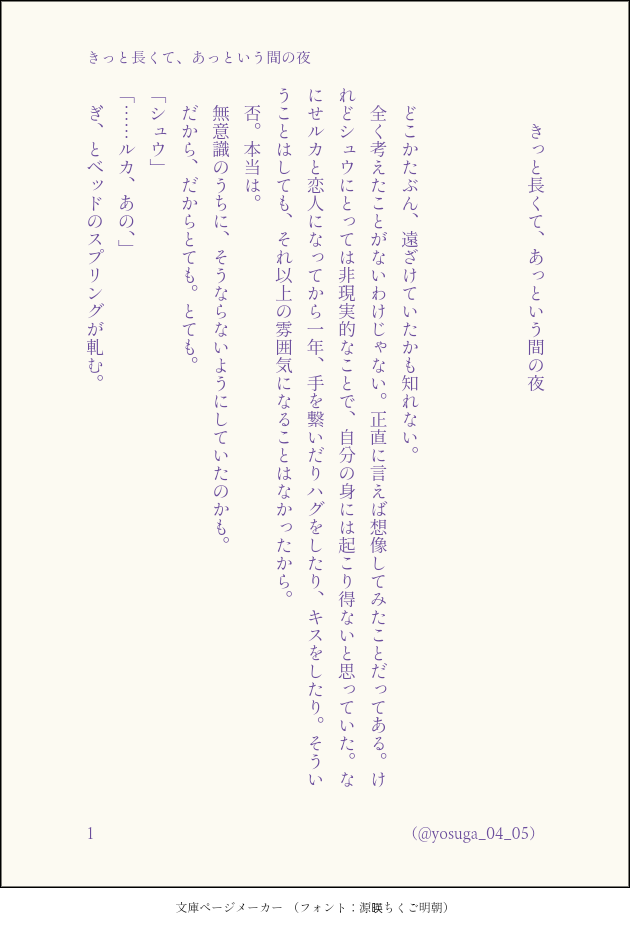 きっと長くて、あっという間の夜
きっと長くて、あっという間の夜
どこかたぶん、遠ざけていたかも知れない。
全く考えたことがないわけじゃない。正直に言えば想像してみたことだってある。け
れどシュウにとっては非現実的なことで、自分の身には起こり得ないと思っていた。な
にせルカと恋人になってから一年、手を繋いだりハグをしたり、キスをしたり。そうい
うことはしても、それ以上の雰囲気になることはなかったから。
否。本当は。
無意識のうちに、そうならないようにしていたのかも。
だから、だからとても。とても。
「シュウ」
「……ルカ、あの、」
ぎ、とベッドのスプリングが軋む。
1
（@yosuga_04_05）
文庫ページメーカー （フォント：源暎ちくご明朝）